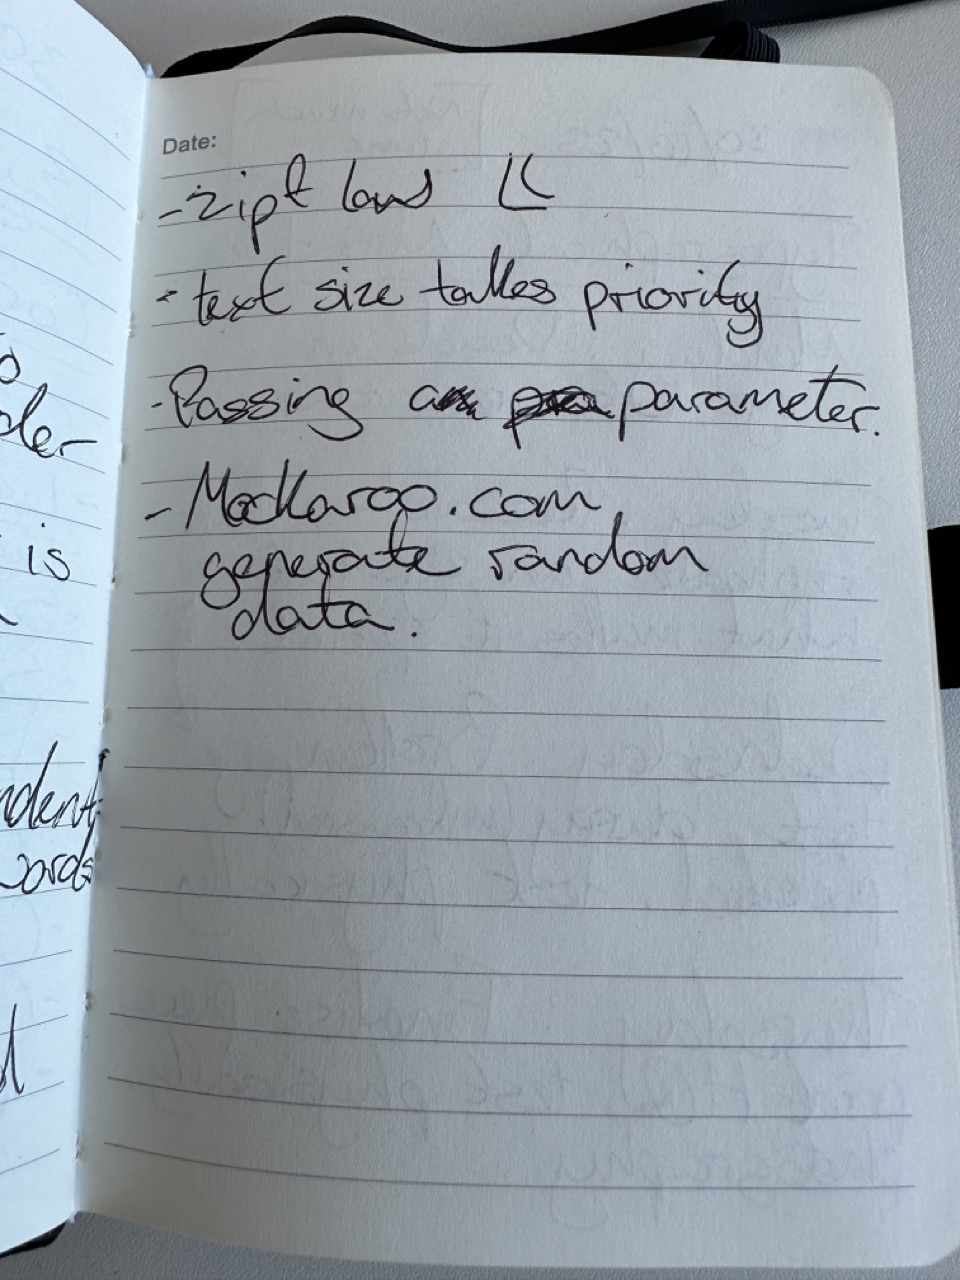 Date:
- Zipf laws
- text size takes priority
- Passing a parameter.
- Mockaroo.com
generate random
data.
der
is
ndent
words